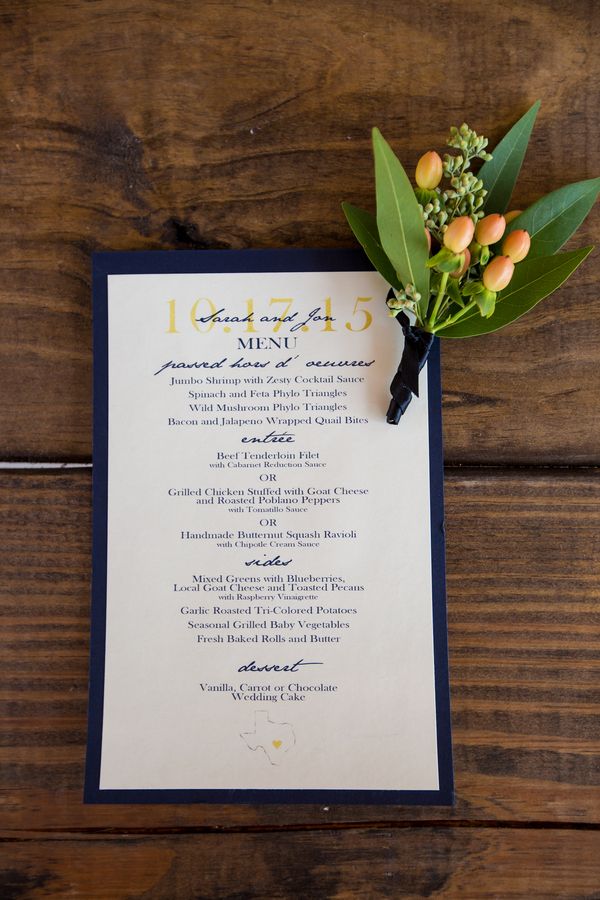 10.17.15
Sarah and Jon
MENU
passed hors d' oeuvres
Jumbo Shrimp with Zesty Cocktail Sauce
Spinach and Feta Phylo Triangles
Wild Mushroom Phylo Triangles
Bacon and Jalapeno Wrapped Quail Bites
entrée
Beef Tenderloin Filet
with Cabarnet Reduction Sauce
OR
Grilled Chicken Stuffed with Goat Cheese
and Roasted Poblano Peppers
with Tomatillo Sauce
OR
Handmade Butternut Squash Ravioli
with Chipotle Cream Sauce
sides
Mixed Greens with Blueberries,
Local Goat Cheese and Toasted Pecans
with Raspberry Vinaigrette
Garlic Roasted Tri-Colored Potatoes
Seasonal Grilled Baby Vegetables
Fresh Baked Rolls and Butter
dessert
Vanilla, Carrot or Chocolate
Wedding Cake